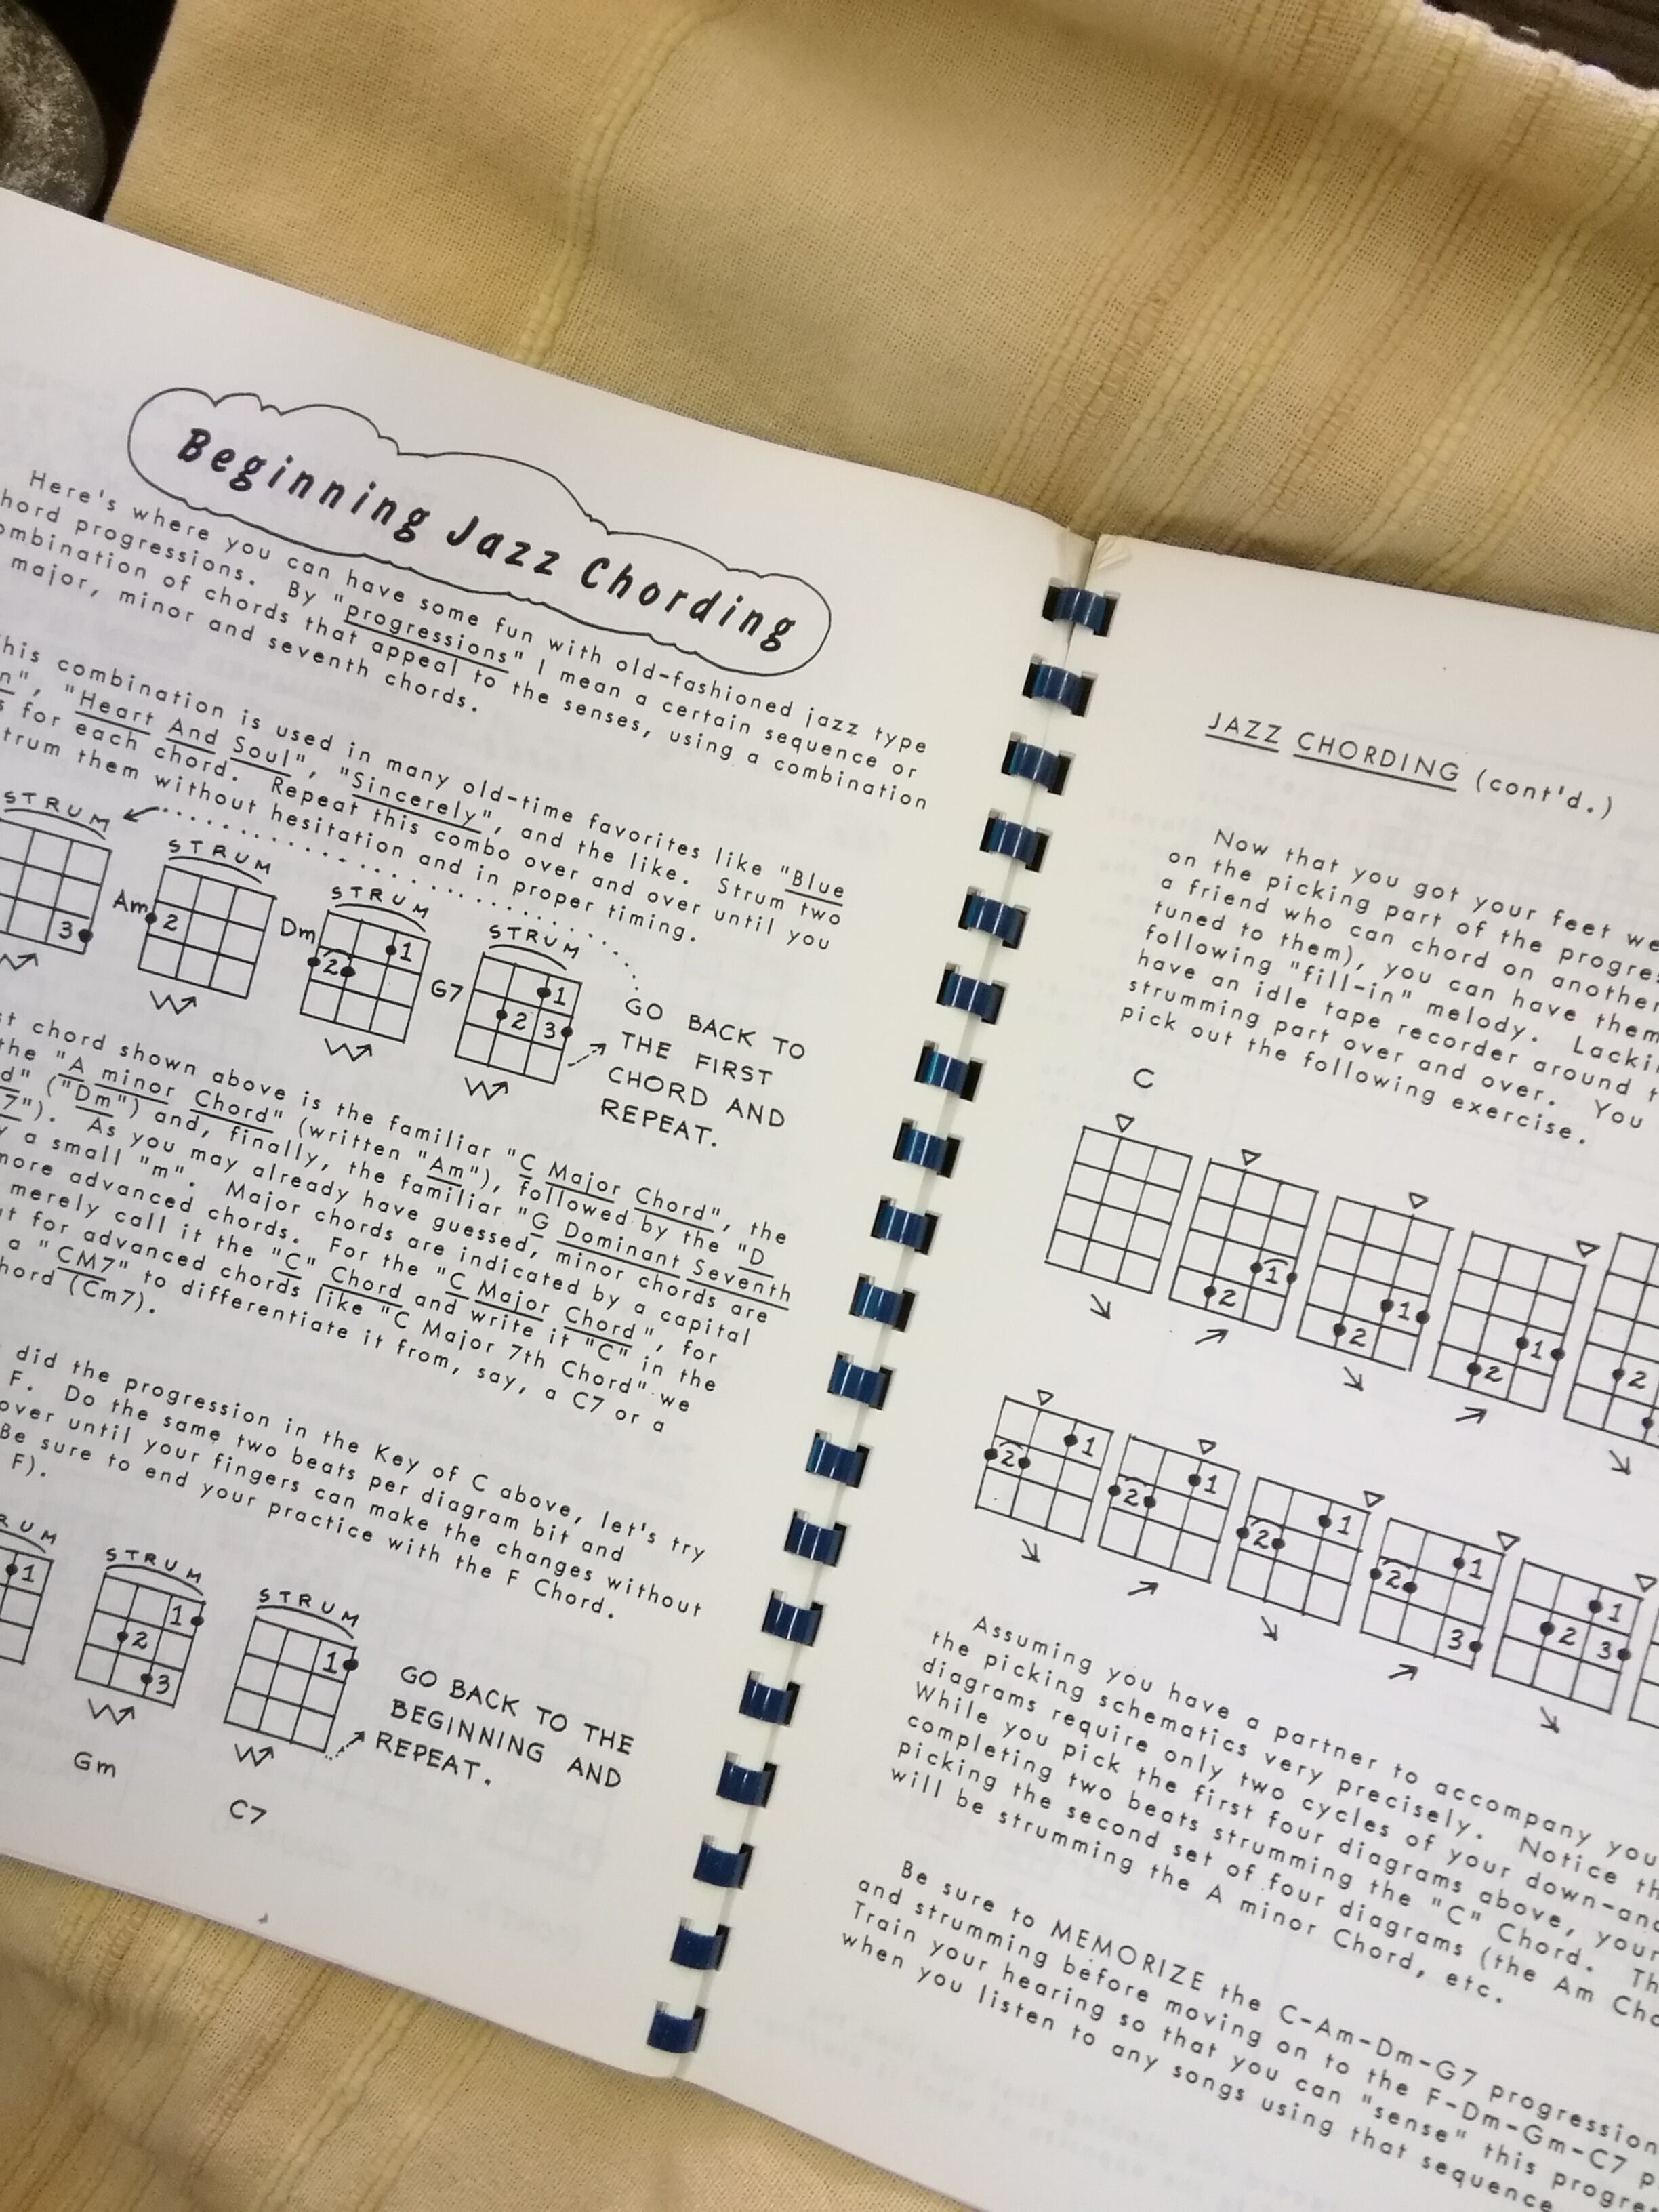 Beginning Jazz Chording
Here's where you can have some fun with old-fashioned jazz type
progressions. By "progressions" I mean a certain sequence or
of chords that appeal to the senses, using a combination
major, minor and seventh chords.
combination is used in many old-time favorites like "Blue
"Heart And Soul", "Sincerely", and the like. Strum two
for each chord. Repeat this combo over and over until you
them without hesitation and in proper timing.
STRUM
3
STRUM
Am
2
STRUM
Dm
1
2
STRUM
G7
1
2 3
GO BACK TO
THE FIRST
CHORD AND
REPEAT.
chord shown above is the familiar "C Major Chord", the
the "A minor Chord" (written "Am"), followed by the "D
("Dm") and, finally, the familiar "G Dominant Seventh
7"). As you may already have guessed, minor chords are
a small "m". Major chords are indicated by a capital
more advanced chords. For the "C Major Chord", for
merely call it the "C" Chord and write it "C" in the
for advanced chords like "C Major 7th Chord" we
a "CM7" to differentiate it from, say, a C7 or a
(Cm7).
did the progression in the Key of C above, let's try
F. Do the same two beats per diagram bit and
over until your fingers can make the changes without
Be sure to end your practice with the F Chord.
F).
1
STRUM
1
2
3
Gm
STRUM
1
C7
GO BACK TO THE
BEGINNING AND
REPEAT.
JAZZ CHORDING (cont'd.)
Now that you got your feet
on the picking part of the
a friend who can chord on another
tuned to them), you can have them
following "fill-in" melody.
have an idle tape recorder around
strumming part over and over. You
pick out the following exercise.
C
1
2
1
2
1
2
2
1
2
1
2
1
2
1
2
3
1
2 3
Assuming you have a partner to accompany you
the picking schematics very precisely. Notice
diagrams require only two cycles of your
While you pick the first four diagrams above, your
completing two beats strumming the "C" Chord.
picking the second set of four diagrams (the Am
will be strumming the A minor Chord, etc.
Be sure to MEMORIZE the C-Am-Dm-G7 progression
and strumming before moving on to the F-Dm-Gm-C7
Train your hearing so that you can "sense" this
when you listen to any songs using that